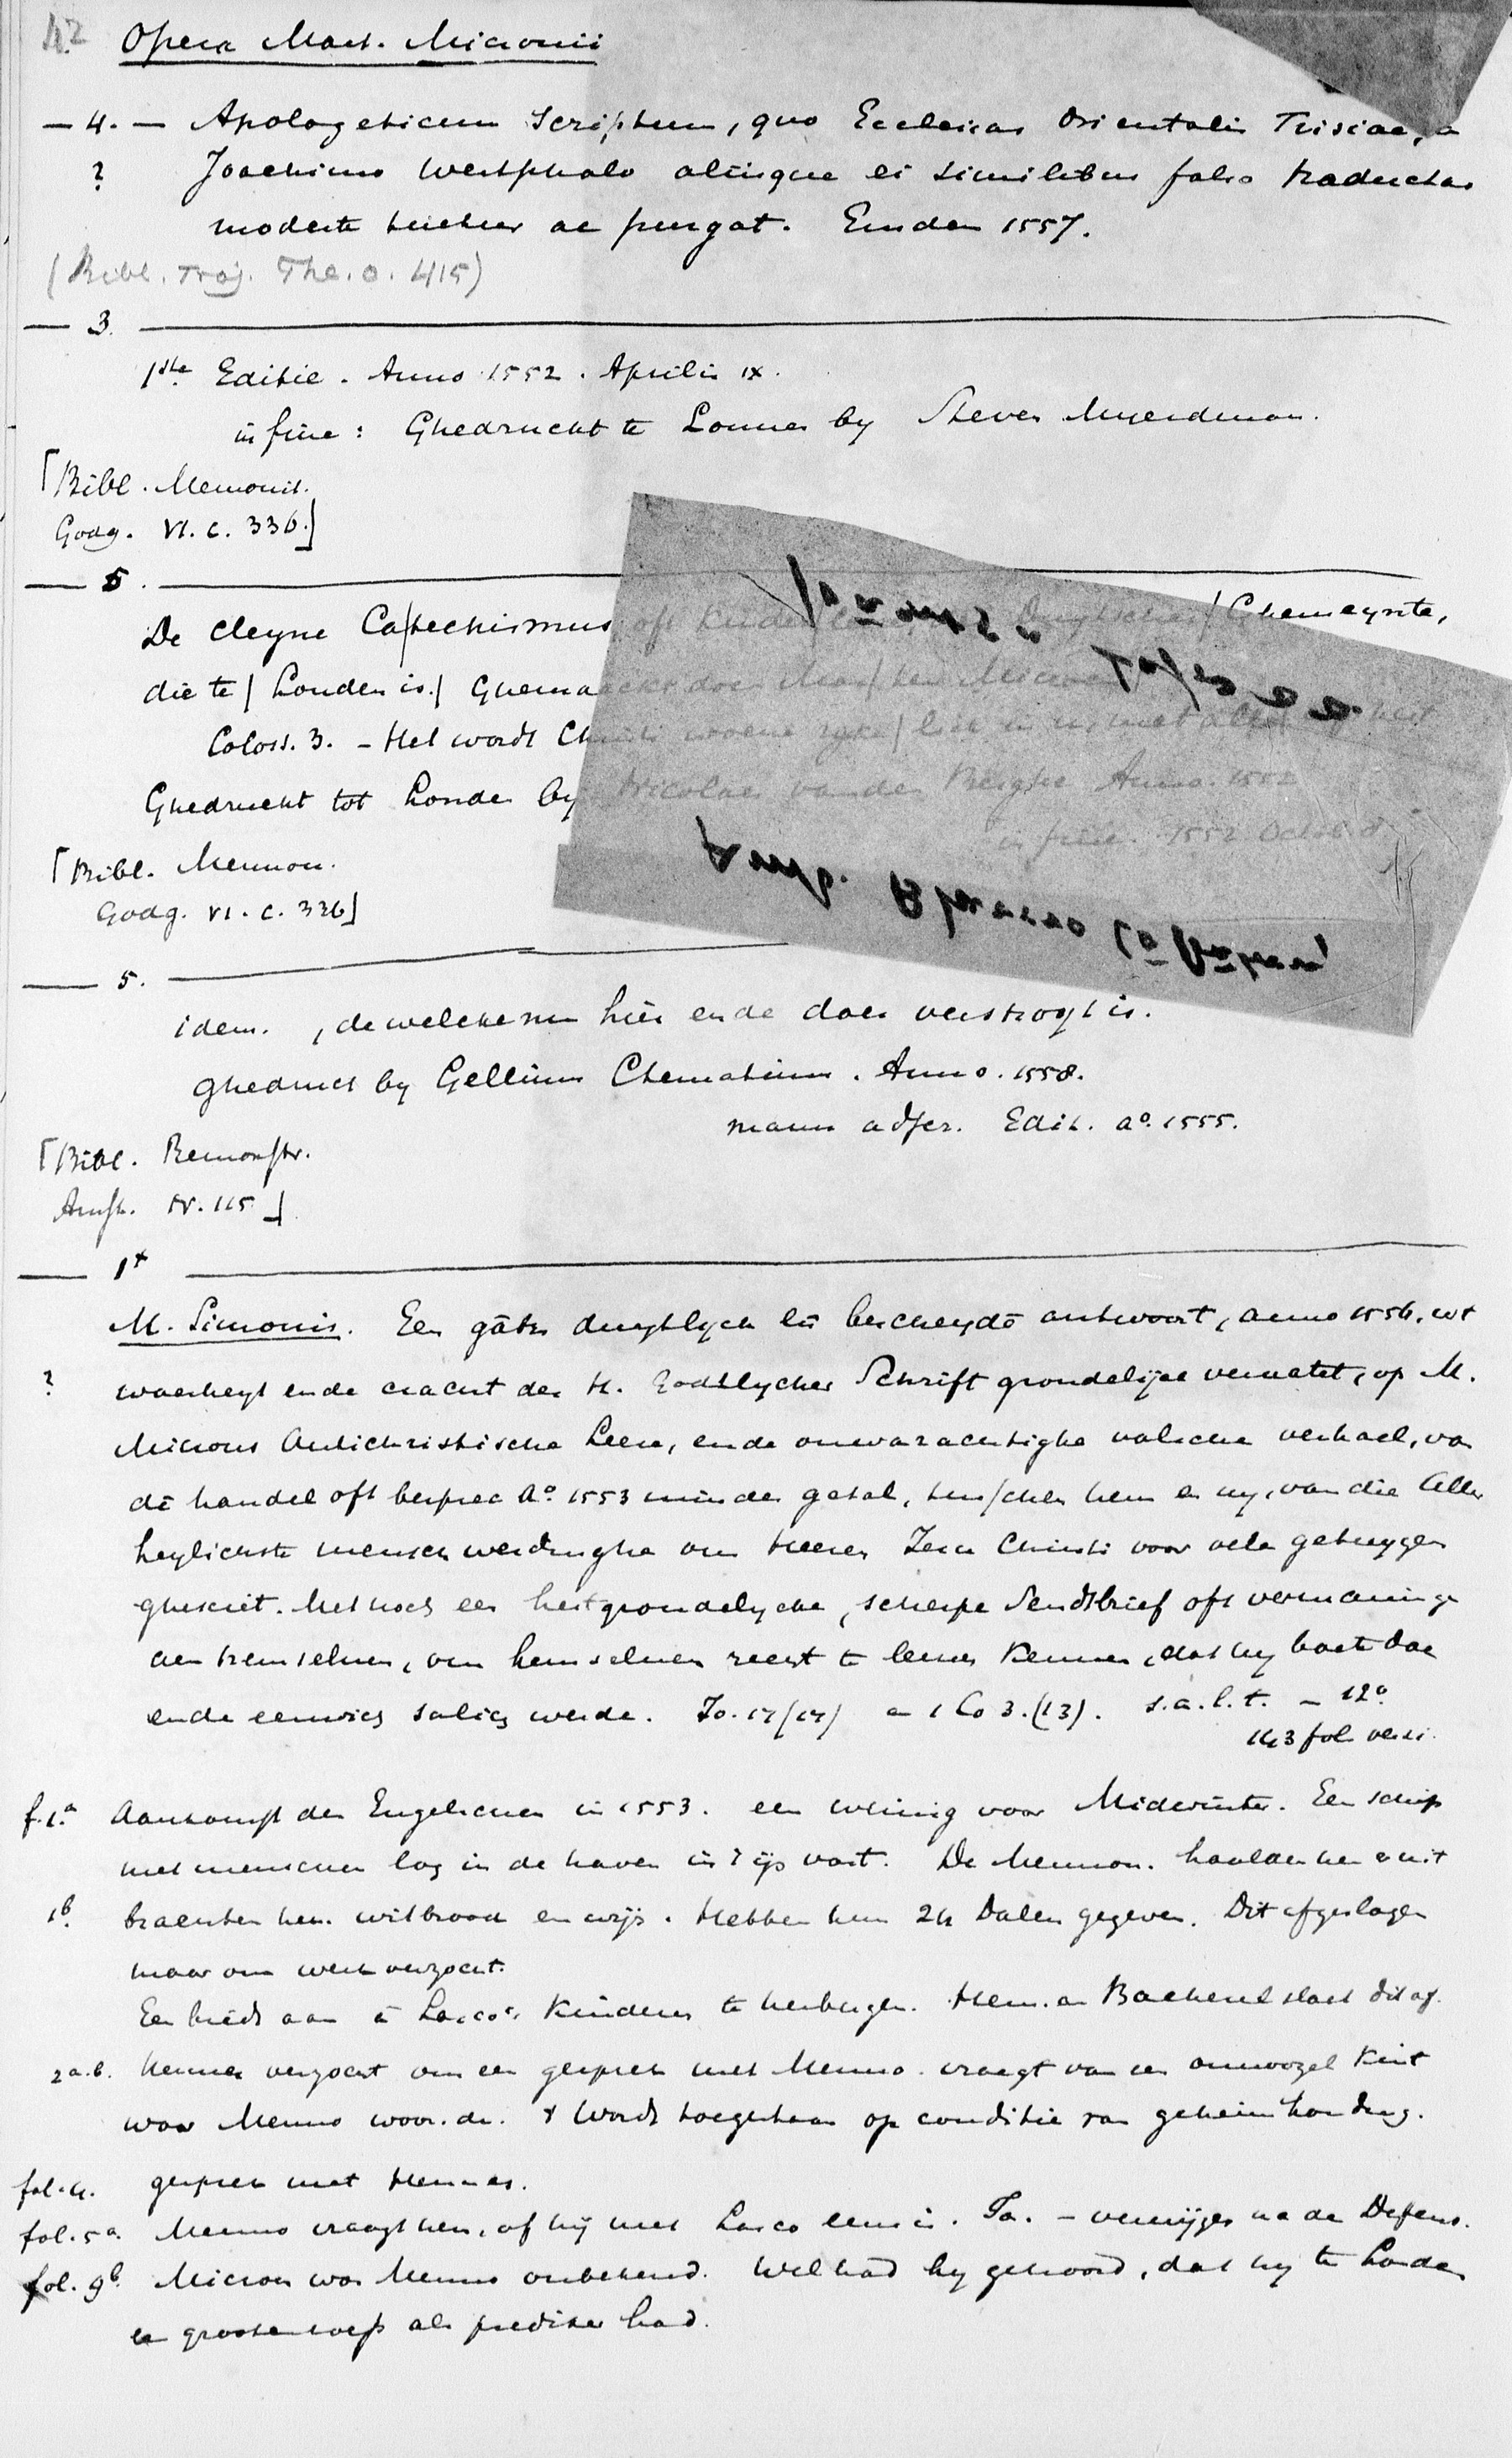 42 Opera Mart. Micronii
— 4. — Apologeticum Scriptum, quo Ecclesias Orientalis Frisiae, a
? Joachimo Westphalo aliisque ei similibus falso traductas
modeste tuetur ac purgat. Emden 1557.
(Bibl. Traj. The. o. 415)
— 3.
1ste Editie. Anno 1552. Aprilis ix.
in fine: Ghedruckt te Lonnen by Steven Myerdman.
[Bibl. Mennonit.
Godg. VI. c. 336.]
— 5.
De cleyne Catechismus oft Kinder Duytscher/ Ghemeynte,
die te/ Londen is./ Ghemaeckt door Mar/ten Micron
Coloss. 3. – Het wordt Christi woene rycke/lick in u, met alle
Ghedruckt tot Londen by Nicolaes van den Berghe Anno. 1552
in fine. 1552 Octob. 8
[Bibl. Mennon.
Godg. VI. c. 336]
— 5.
idem. , de welcke nu hier ende daer verstroyt is.
ghedruct by Gellium Ctematium. Anno. 1558.
manu adscr. Edit. ao. 1555.
[Bibl. Remonstr.
Amst. N. 115]
— 1+
M. Simonis. Een gãtz duytlyck eñ bescheydẽ antwoort, anno 1556. wt
? waerheyt ende cracht der H. Godtlycher Schrift grondelijck vervatet, op M.
Microns Antichristische Leere, ende onwarachtighe valsche verhael, van
dẽ handel oft besprec Ao. 1553 minder getal, tusschen hem en my, van die Aller
heylichste menschwerdinghe ons Heeren Jesu Christi voor vele getuygen
gheschiet. Met noch een hertgrondelycke, scherpe Sendtbrief oft vermaninge
aen hemselven, om hem selven recht te leeren kennen, dat hy boete doe
ende eeuwich salich werde. Jo. 17/17/ en 1 Co 3.(13). s.a.l.t. – 12o.
143 fol. versi.
f. 1.a Aankomst der Engelschen in 1553. een weinig voor Midwinter. Een schip
met menschen lag in de haven in 't ijs vast. De Mennon. haalden hen er uit
1b. brachten hen. witbrood en wijn. Hebben hun 24 Daler gegeven. Dit afgeslagen
maar om werk verzocht.
Een biedt aan à Lasco's kinderen te herbergen. Herm. Backereel slaat dit af.
2 a.b. Hermes verzocht om een gesprek met Menno. vraagt van een onnoozel kint
waar Menno woonde. & Wordt toegestaan op conditie van geheimhouding.
fol. 4. gesprek met Hermes.
fol. 5a. Menno vraagt hen, of hij met Lasco eens is. Ja. – verwijzen na de Defens.
fol. 9b. Micron was Menno onbekend. Wel had hy gehoord, dat hy te Londen
een grooten roep als prediker had.